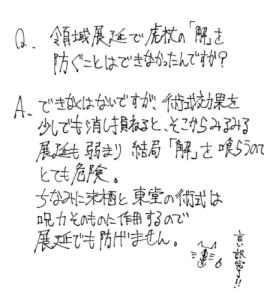 Q. 領域展延で虎杖の「解」を
防ぐことはできなかったんですか？
A. できなくはないですが、術式効果を
少しでも消し損ねると、そこからみるみる
展延も弱まり 結局「解」を喰らうので
とても危険。
ちなみに来栖と東堂の術式は
呪力そのものに作用するので
展延でも防げません。
言訳寧!!